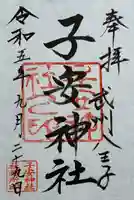 奉拝
武州八王子
子安神社
令和五年九月二十九日